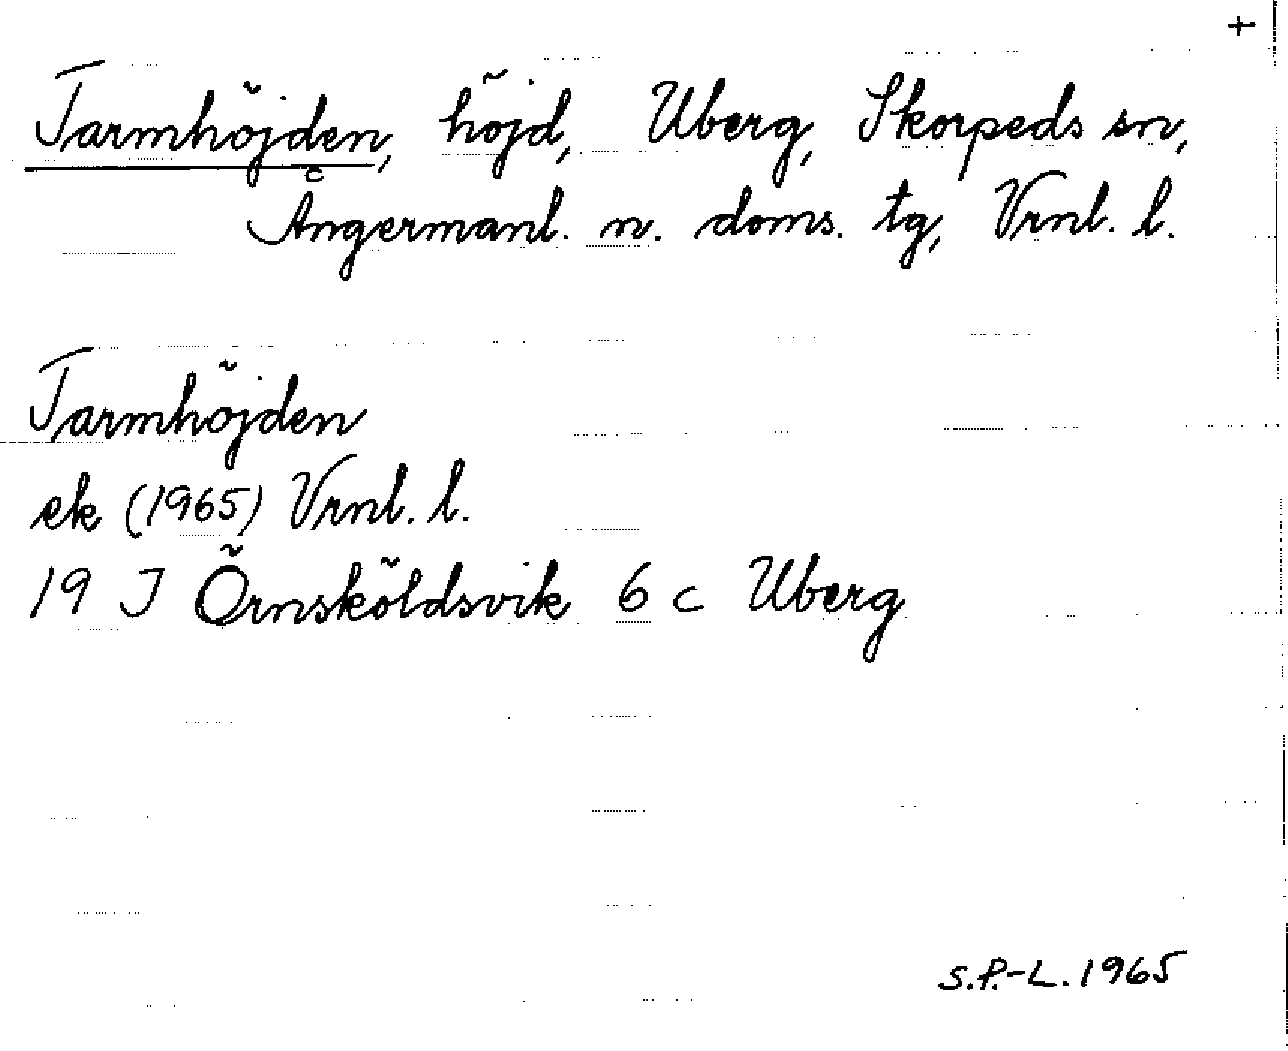 +
Tarmhöjden, höjd, Uberg, Skorpeds sn,
Ångermanl. n. doms. tg, Vrnl. l.
Tarmhöjden
ek (1965) Vrnl. l.
19 J Örnsköldsvik 6 c Uberg
S.P.-L. 1965